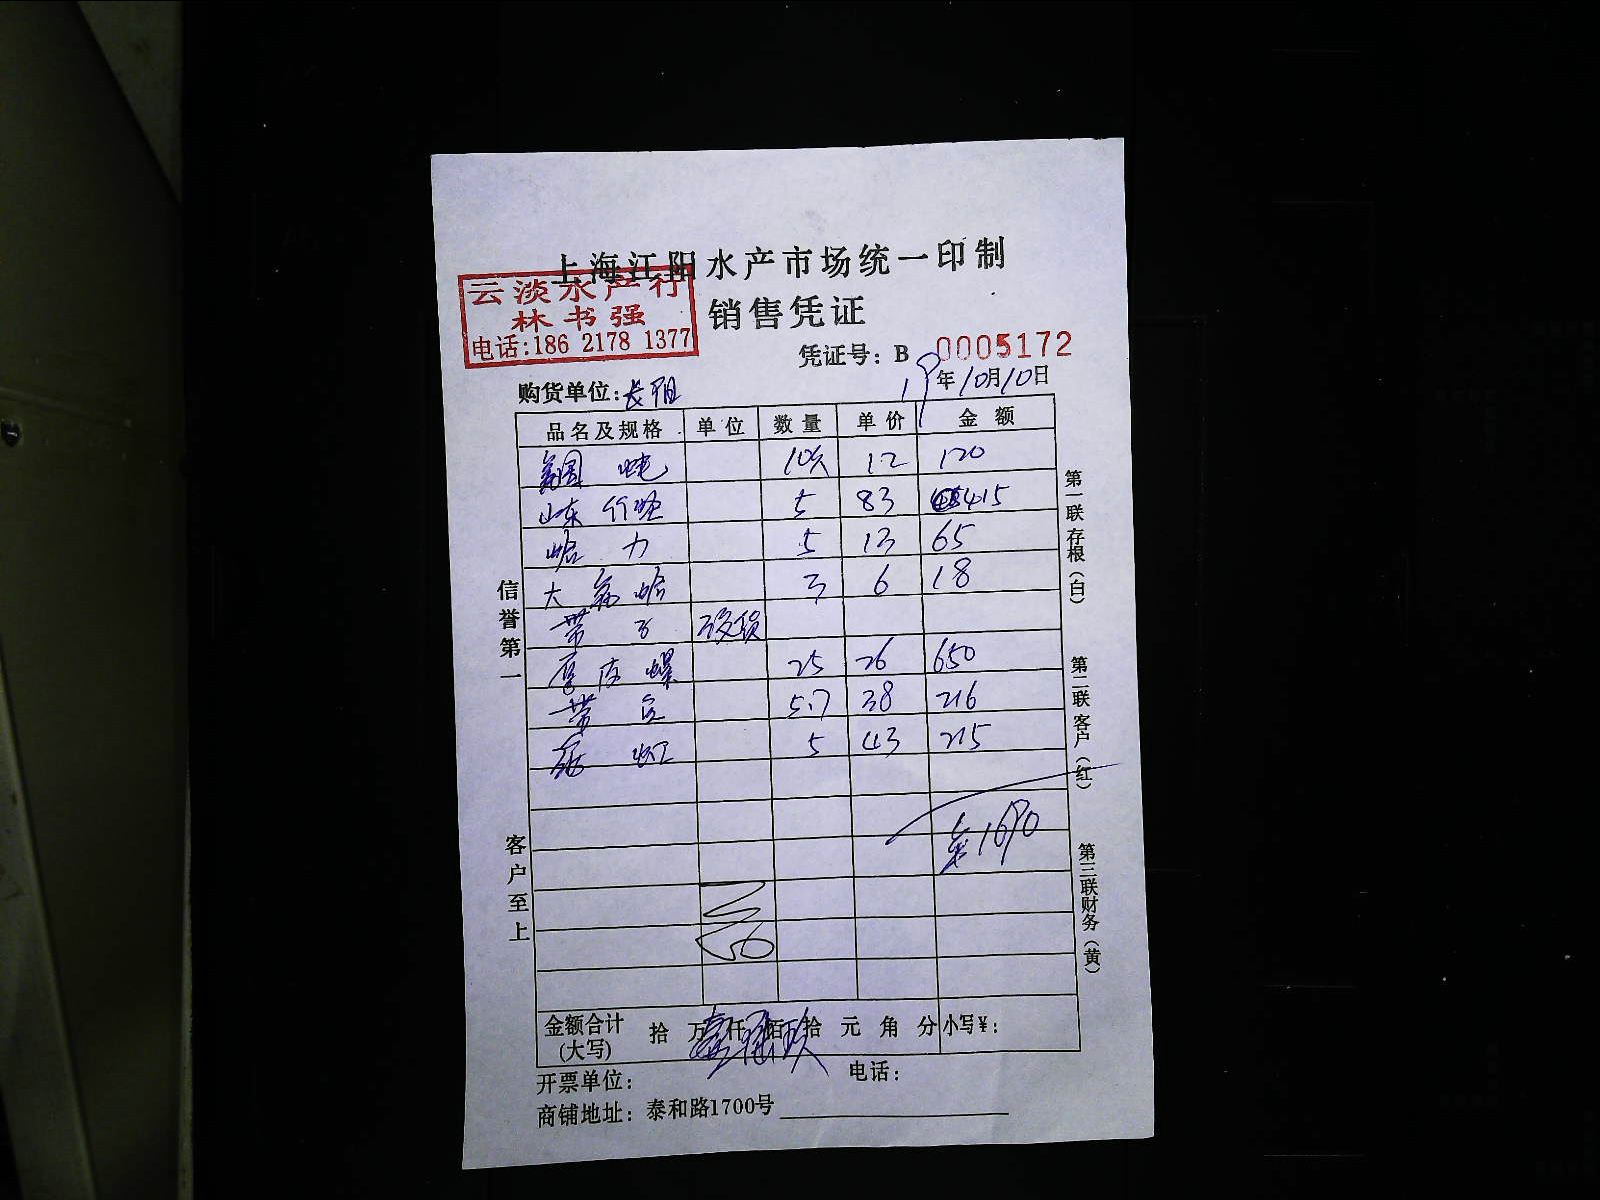 上海江阳水产市场统一印制
云淡水产行
林书强
电话:186 2178 1377
销售凭证
凭证号: B 0005172
购货单位: 19年10月10日
品名及规格 单位 数量 单价 金额
10 12 120
山东 5 83 415
5 13 65
大 3 6 18
带子 没货
25 26 650
带 5.7 38 216
5 43 215
1690
金额合计(大写) 拾 万 仟 佰 拾 元 角 分 小写¥:
开票单位: 电话:
商铺地址: 泰和路1700号
信誉第一
客户至上
第一联存根(白)
第二联客户(红)
第三联财务(黄)